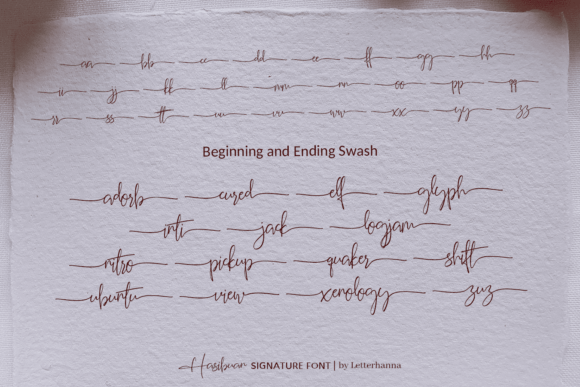 aa bb cc dd ee ff gg hh
ii jj kk ll mm nn oo pp qq
rr ss tt uu vv ww xx yy zz
Beginning and Ending Swash
adorb cured elf glyph
inti jack logjam
nitro pickup quaker shift
ubuntu view xenology zuz
Hasibuan SIGNATURE FONT | by Letterhanna